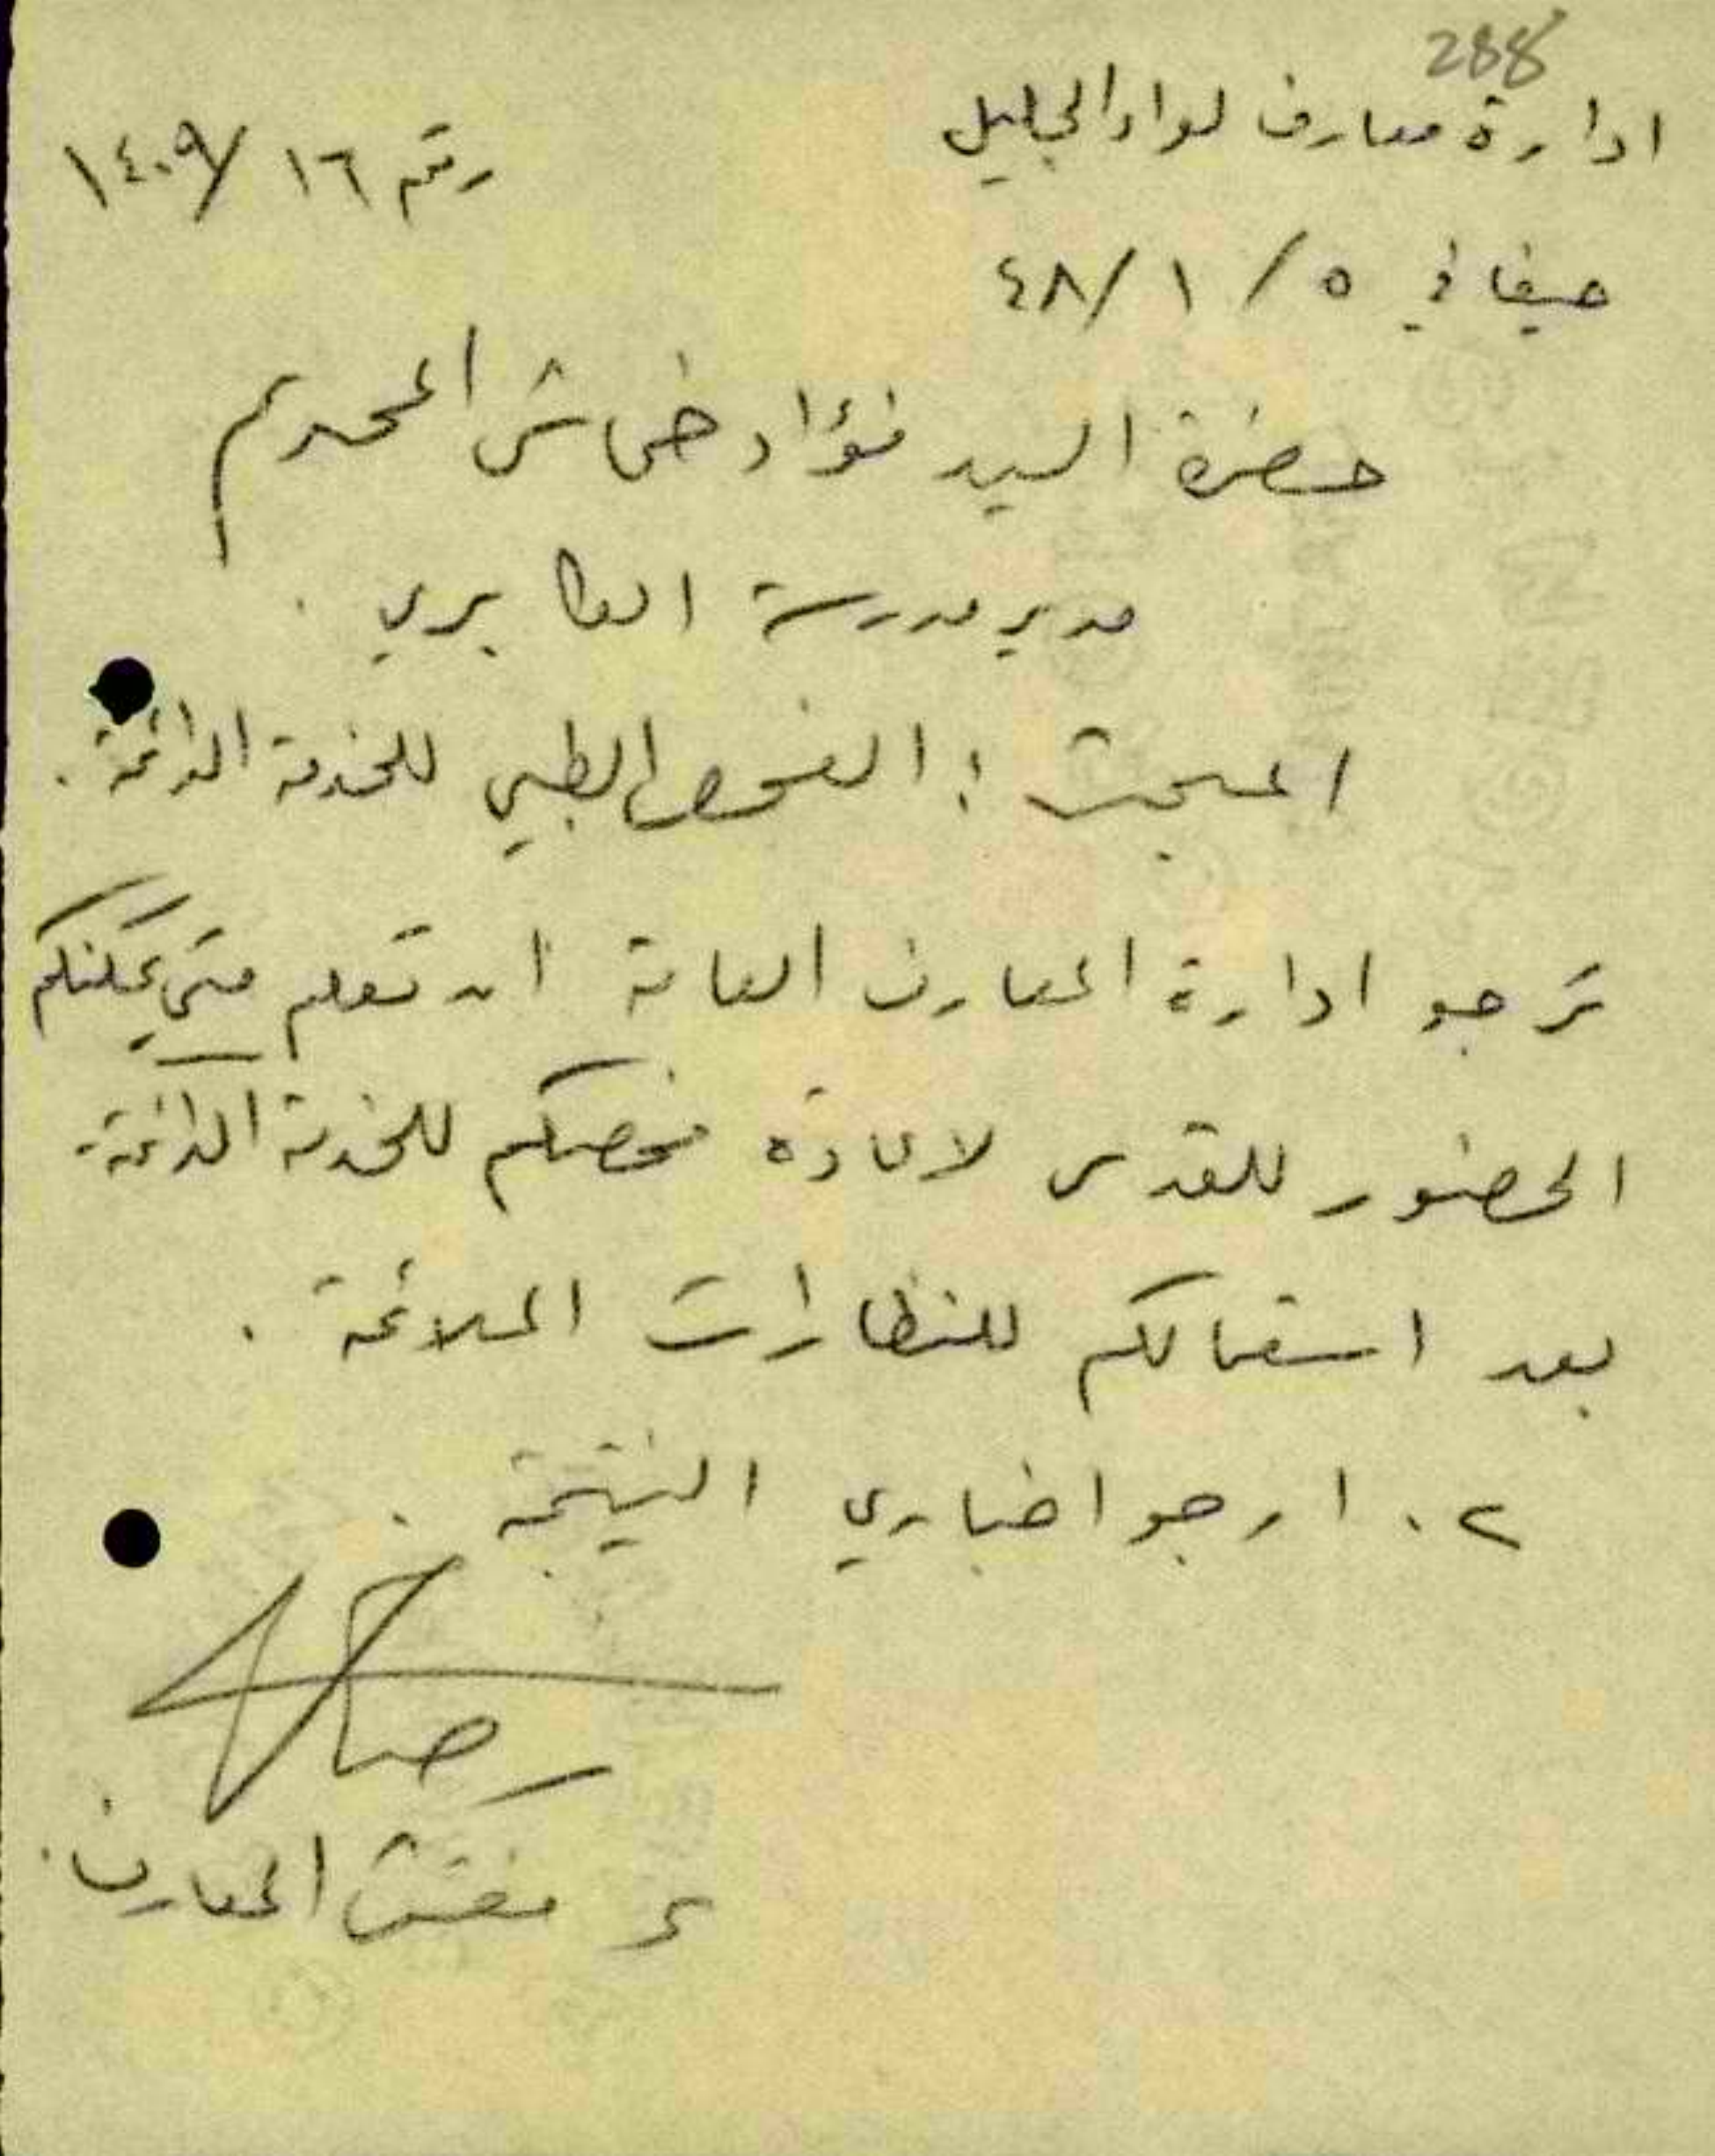 288
ادارة معارف لواء الجليل
رقم ١٦ /١٤٠٩
حيفا في ٥ / ١ /٤٨
حضرة السيد فؤاد خماش المحترم
مدير مدرسة الكابري .
المبحث : الفحص الطبي للخدمة الدائمة .
ترجو ادارة المعارف العامة ان تعلم متى يمكنكم
الحضور للقدس لاعادة فحصكم للخدمة الدائمة
بعد استعمالكم للنظارات الملائمة .
٢ . ارجو اخباري النتيجة .
مفتش المعارف .